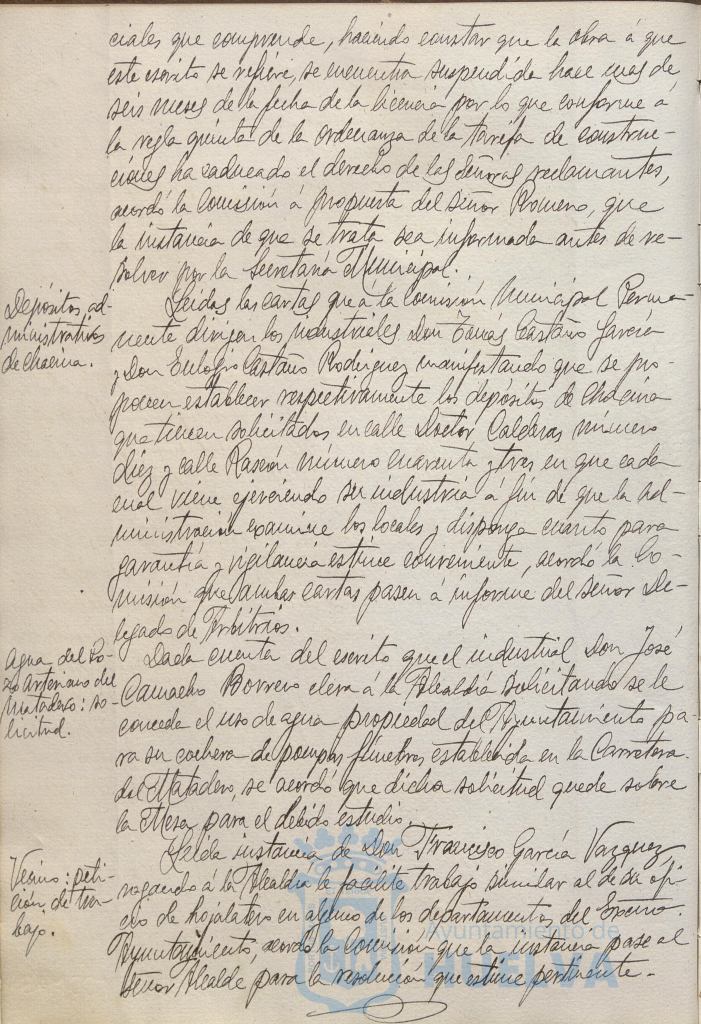 ciales que comprende, haciendo constar que la obra á que
este escrito se refiere, se encuentra suspendida hace mas de
seis meses de la fecha de la licencia por lo que conforme á
la regla quinta de la ordenanza de la tarifa de construc-
ciones ha caducado el derecho de las Señoras reclamantes,
acordó la Comisión á propuesta del Señor Romero, que
la instancia de que se trata sea informada antes de re-
solver por la Secretaría Municipal.
Depósitos ad-
ministrativos
de chacina.
Leidas las cartas que á la Comisión Municipal Perma-
nente dirigen los industriales Don Tomás Castaño García
y Don Eulogio Castaño Rodriguez manifestando que se pro-
ponen establecer respectivamente los depósitos de chacina
que tienen solicitados en calle Doctor Calderas número
diez y calle Rascón número cuarenta y tres en que cada
cual viene ejerciendo su industria á fin de que la ad-
ministración examine los locales y disponga cuanto para
garantía y vigilancia estime conveniente, acordó la Co-
misión que ambas cartas pasen á informe del señor De-
legado de Arbitrios.
Agua del Po-
zo Artesiano del
Matadero: so-
licitud.
Dada cuenta del escrito que el industrial Don José
Camacho Borrero eleva á la Alcaldía solicitando se le
conceda el uso de agua propiedad del Ayuntamiento pa-
ra su cochera de pompas fúnebres establecida en la Carretera
del Matadero, se acordó que dicha solicitud quede sobre
la Mesa para el debido estudio.
Vecino: peti-
ción de tra-
bajo.
Leida instancia de Don Francisco García Vazquez,
rogando á la Alcaldía le facilite trabajo similar al de su ofi-
cio de hojalatero en alguno de los departamentos del Excmo.
Ayuntamiento, acordó la Comisión que la instancia pase al
Señor Alcalde para la resolución que estime pertinente.-
Ayuntamiento de
HUELVA